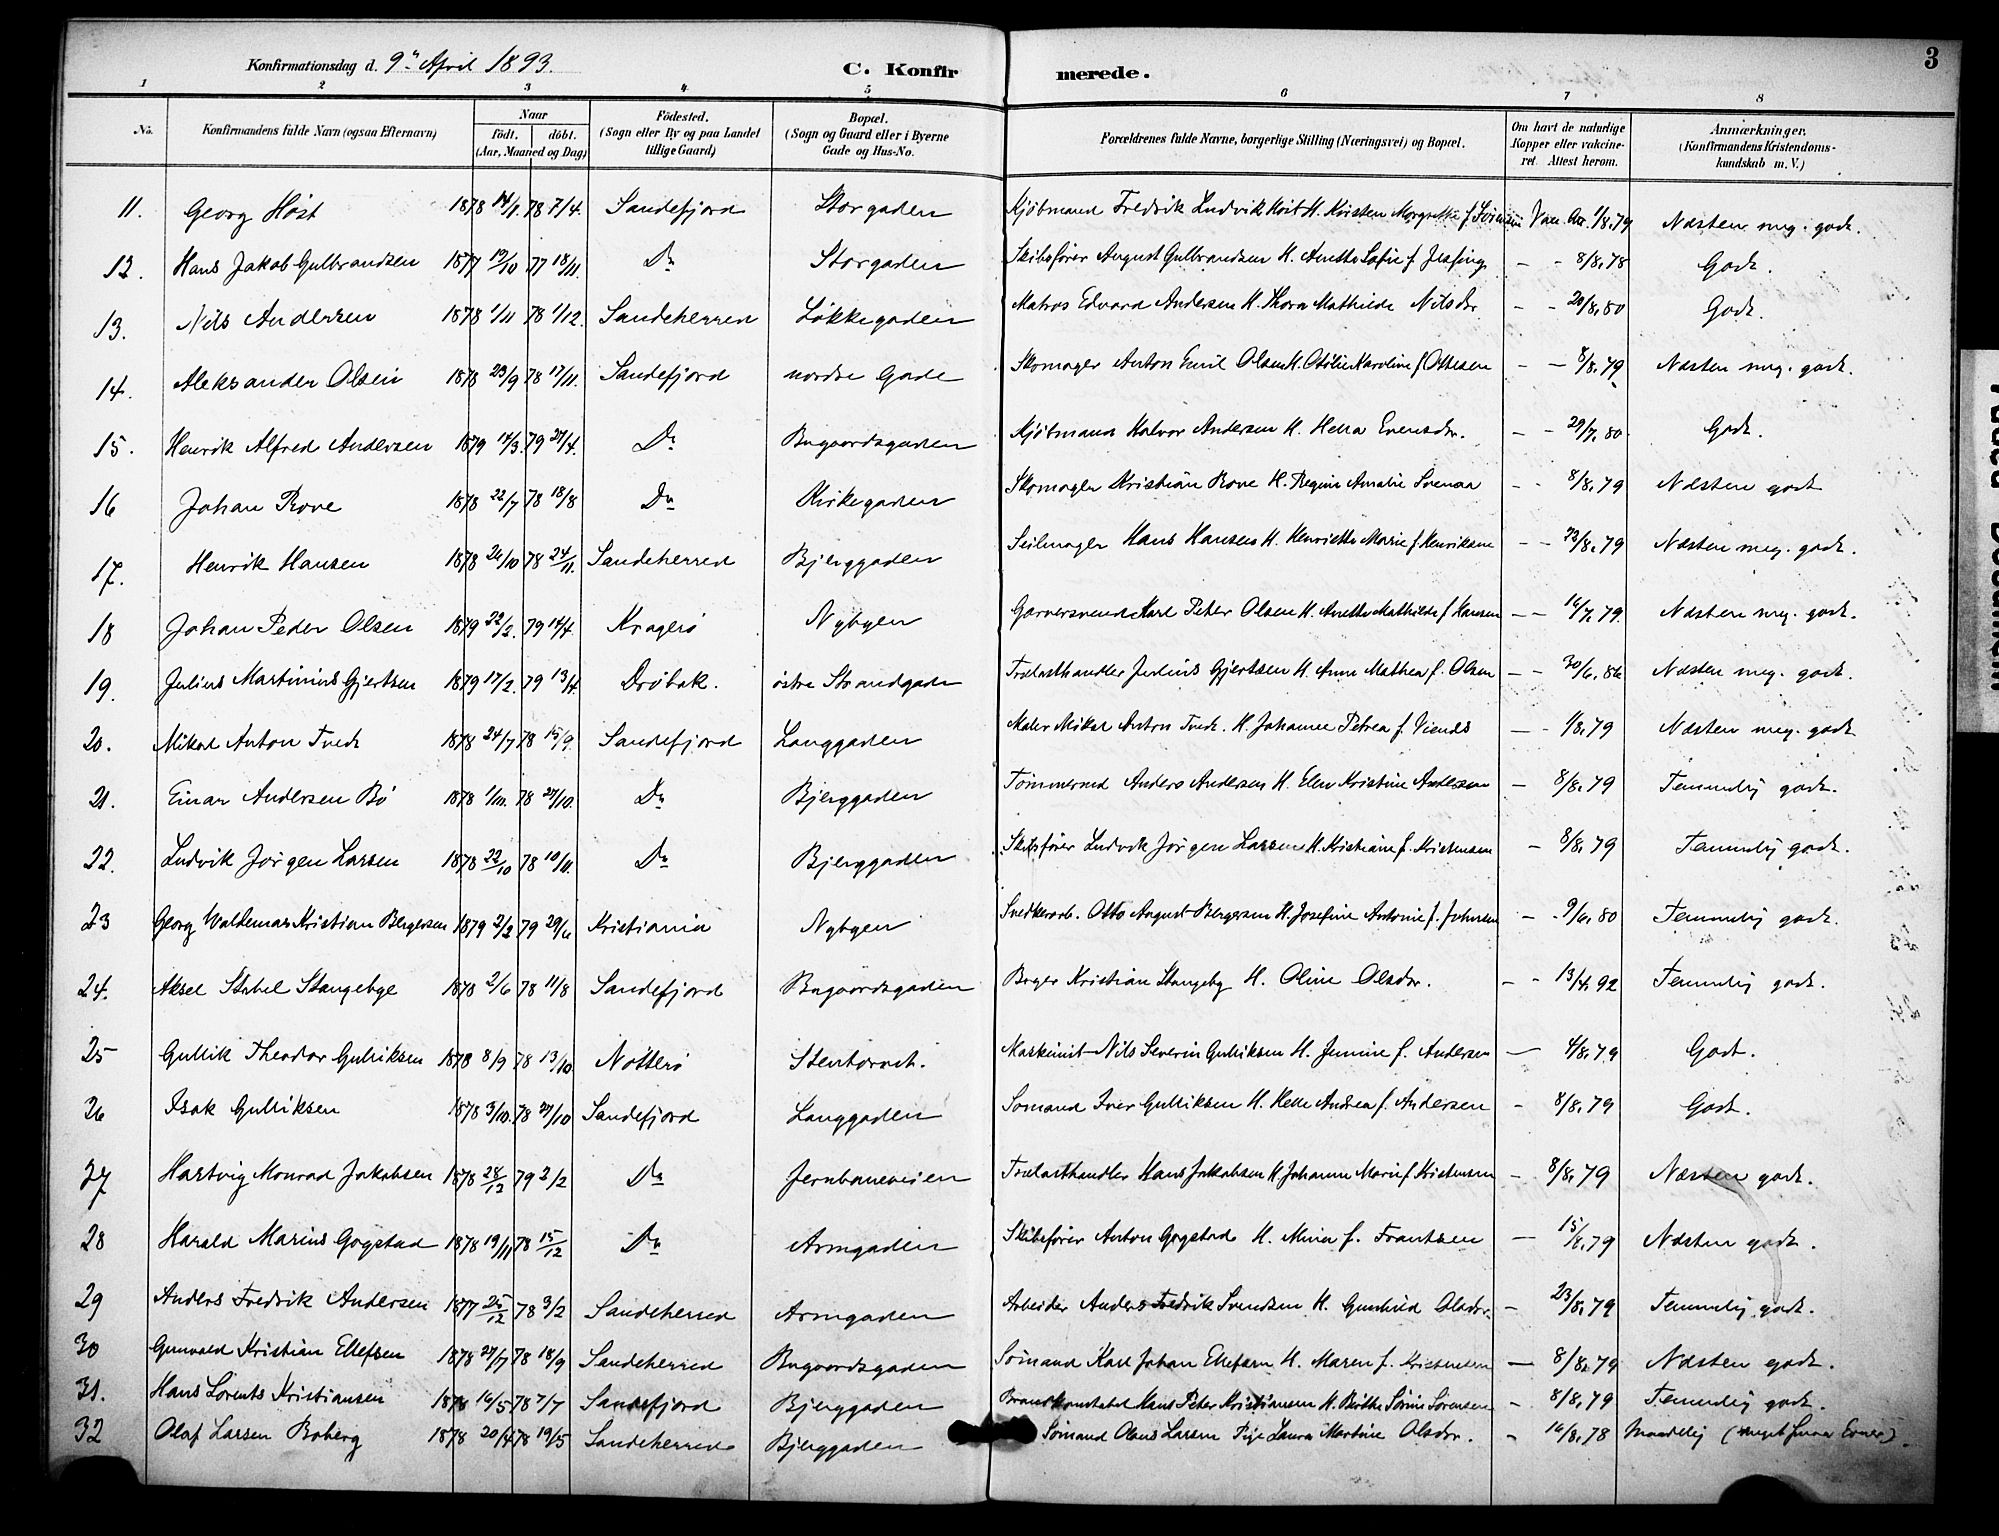 Konfirmationsdag d. 9de April 1893. C. Konfirmerede. 3
1 2 3 4 5 6 7 8
No. Konfirmandens fulde Navn (ogsaa Efternavn) Naar født. døbt. (Aar, Maaned og Dag) Fødested. (Sogn eller By og paa Landet tillige Gaard) Bopæl. (Sogn og Gaard eller i Byerne Gade og Hus-No. Forældrenes fulde Navne, borgerlige Stilling (Næringsvei) og Bopæl. Om havt de naturlige Kopper eller vakcineret. Attest herom. Anmærkninger. (Konfirmandens Kristendomskundskab m. V.)
11. Georg Høst 1878 14/1. 78 7/4. Sandefjord Storgaden Kjøbmand Fredrik Ludvik Høst H. Kirsten Margrethe f Sørensen Vac. 1/8.79 Næsten meg. godt.
12. Hans Jakob Gulbrandsen 1877 19/10 77 18/11. Do Storgaden Skibsfører August Gulbrandsen H. Anette Sofie f. - - 8/8.78 Godt.
13. Nils Andersen 1878 1/11 78 1/12. Sandeherred Løkkegaden Matros Edvard Andersen H. Thora Mathilde Nilsdr - - 20/8.80 Godt.
14. Aleksander Olsen 1878 23/9 78 17/11. Sandefjord nordre Gade Skomager Anton Emil Olsen H. Otilie Karoline f Ottesen - - 8/8.79 Næsten meg. godt.
15. Henrik Alfred Andersen 1879 14/3. 79 27/4. Do Bugaardsgaden Kjøbmand Halvor Andersen H. Helna Evensdr. - - 29/7.80 Godt.
16 Johan Rove 1878 22/7 78 18/8 Do Kirkegaden Skomager Kristian Rove H. Regine Amalie - - 8/8.79 Næsten godt
17. Henrik Hansen 1878 26/10 78 24/11. Sandeherred Bjerggaden Seilmager Hans Hansen H. Henriette Marie f. Henriksen - - /8.79 Næsten meg. godt.
18 Johan Peder Olsen 1879 22/2. 79 14/4. Kragerø Nybyen Garversvend Karl Peter Olsen H. Anette Mathilde f Hansen - - 16/7.79. Næsten meg. godt.
19. Julius Martinius Gjertsen 1879 17/2. 79 13/4 Drøbak. østre Strandgade Trælasthandler Julius Gjertsen H. Anne Mathea f. Olsen - - 30/6.86 Næsten meg. godt.
20. Mikal Anton Tvedt 1878 24/7 78 15/9. Sandefjord Langgaden Maler Mikal Anton Tvedt. H. Johanne Petrea f. - - 1/8.79 Næsten meg. godt
21. Einar Andersen Bø 1878 1/10. 78 27/10. Do Bjerggaden Tømmermd Anders Andersen H. Elen Kristine Andersen - 8/8.79 Temmelig godt.
22. Ludvik Jørgen Larsen 1878 22/10 78 10/11. Do Bjerggaden Skibsfører Ludvik Jørgen Larsen H. Kristiane f. Kristensen - 8/8.79 Temmelig godt.
23 Georg Waldemar Kristian Bergersen 1879 2/2 79 29/6 Kristiania Nybyen Snedkerarb. Otto August Bergersen H. Josefine Antonie f. Johnsen - - 9/6.80 Temmelig godt.
24. Aksel Stabel Stangebye 1878 2/6 78 11/8 Sandefjord Bugaardsgaden Bager Kristian Stangeby H. Oline Olsdr. - - 13/4.92 Temmelig godt.
25 Gullik Theodor Gulliksen 1878 8/9 78 13/10 Nøtterø Stentorvet. Maskinist Nils Severin Gulliksen H. Jensine f. Andersen - 4/8.79 Godt.
26 Isak Gulliksen 1878 3/10. 78 27/10 Sandefjord Langgaden Sømand Iver Gulliksen H. Helle Andrea f. Andersen - 8/8.79 Godt.
27 Hartvig Monrad Jakobsen 1878 28/12 79 2/2 Do Jernbaneveien Trælasthandler Hans Jakobsen H. Johanne Marie f Kristensen - 8/8.79 Næsten godt.
28 Harald Marius Gogstad 1878 19/11 78 15/12 Do Armgaden Skibsfører Anton Gogstad H. Mina f. Frantsen - 15/8.79 Næsten godt.
29 Anders Fredrik Andersen 1877 25/12 78 3/2 Sandeherred Armgaden Arbeider Anders Fredrik Svendsen H. Gunhild Olsdr. - 23/8.79 Temmelig godt.
30 Gunvald Kristian Ellefsen 1878 27/7 78 18/9 Sandeherred Bugaardsgaden Sømand Karl Johan Ellefsen H. Maren f. Kristensen - 8/8.79 Næsten godt.
31. Hans Lorents Kristiansen 1878 16/5 78 7/7 Sandefjord Bjerggaden Brandkonstabel Hans Peter Kristiansen H. Birthe Sørine Sørensen - 8/8.79 Temmelig godt.
32 Olaf Larsen Boberg 1878 20/4 78 19/5 Sandeherred Bjerggaden Sømand Olaus Larsen Pige Laura Martine Olsdr. - 16/8.78 Maadelig (meget Evner).